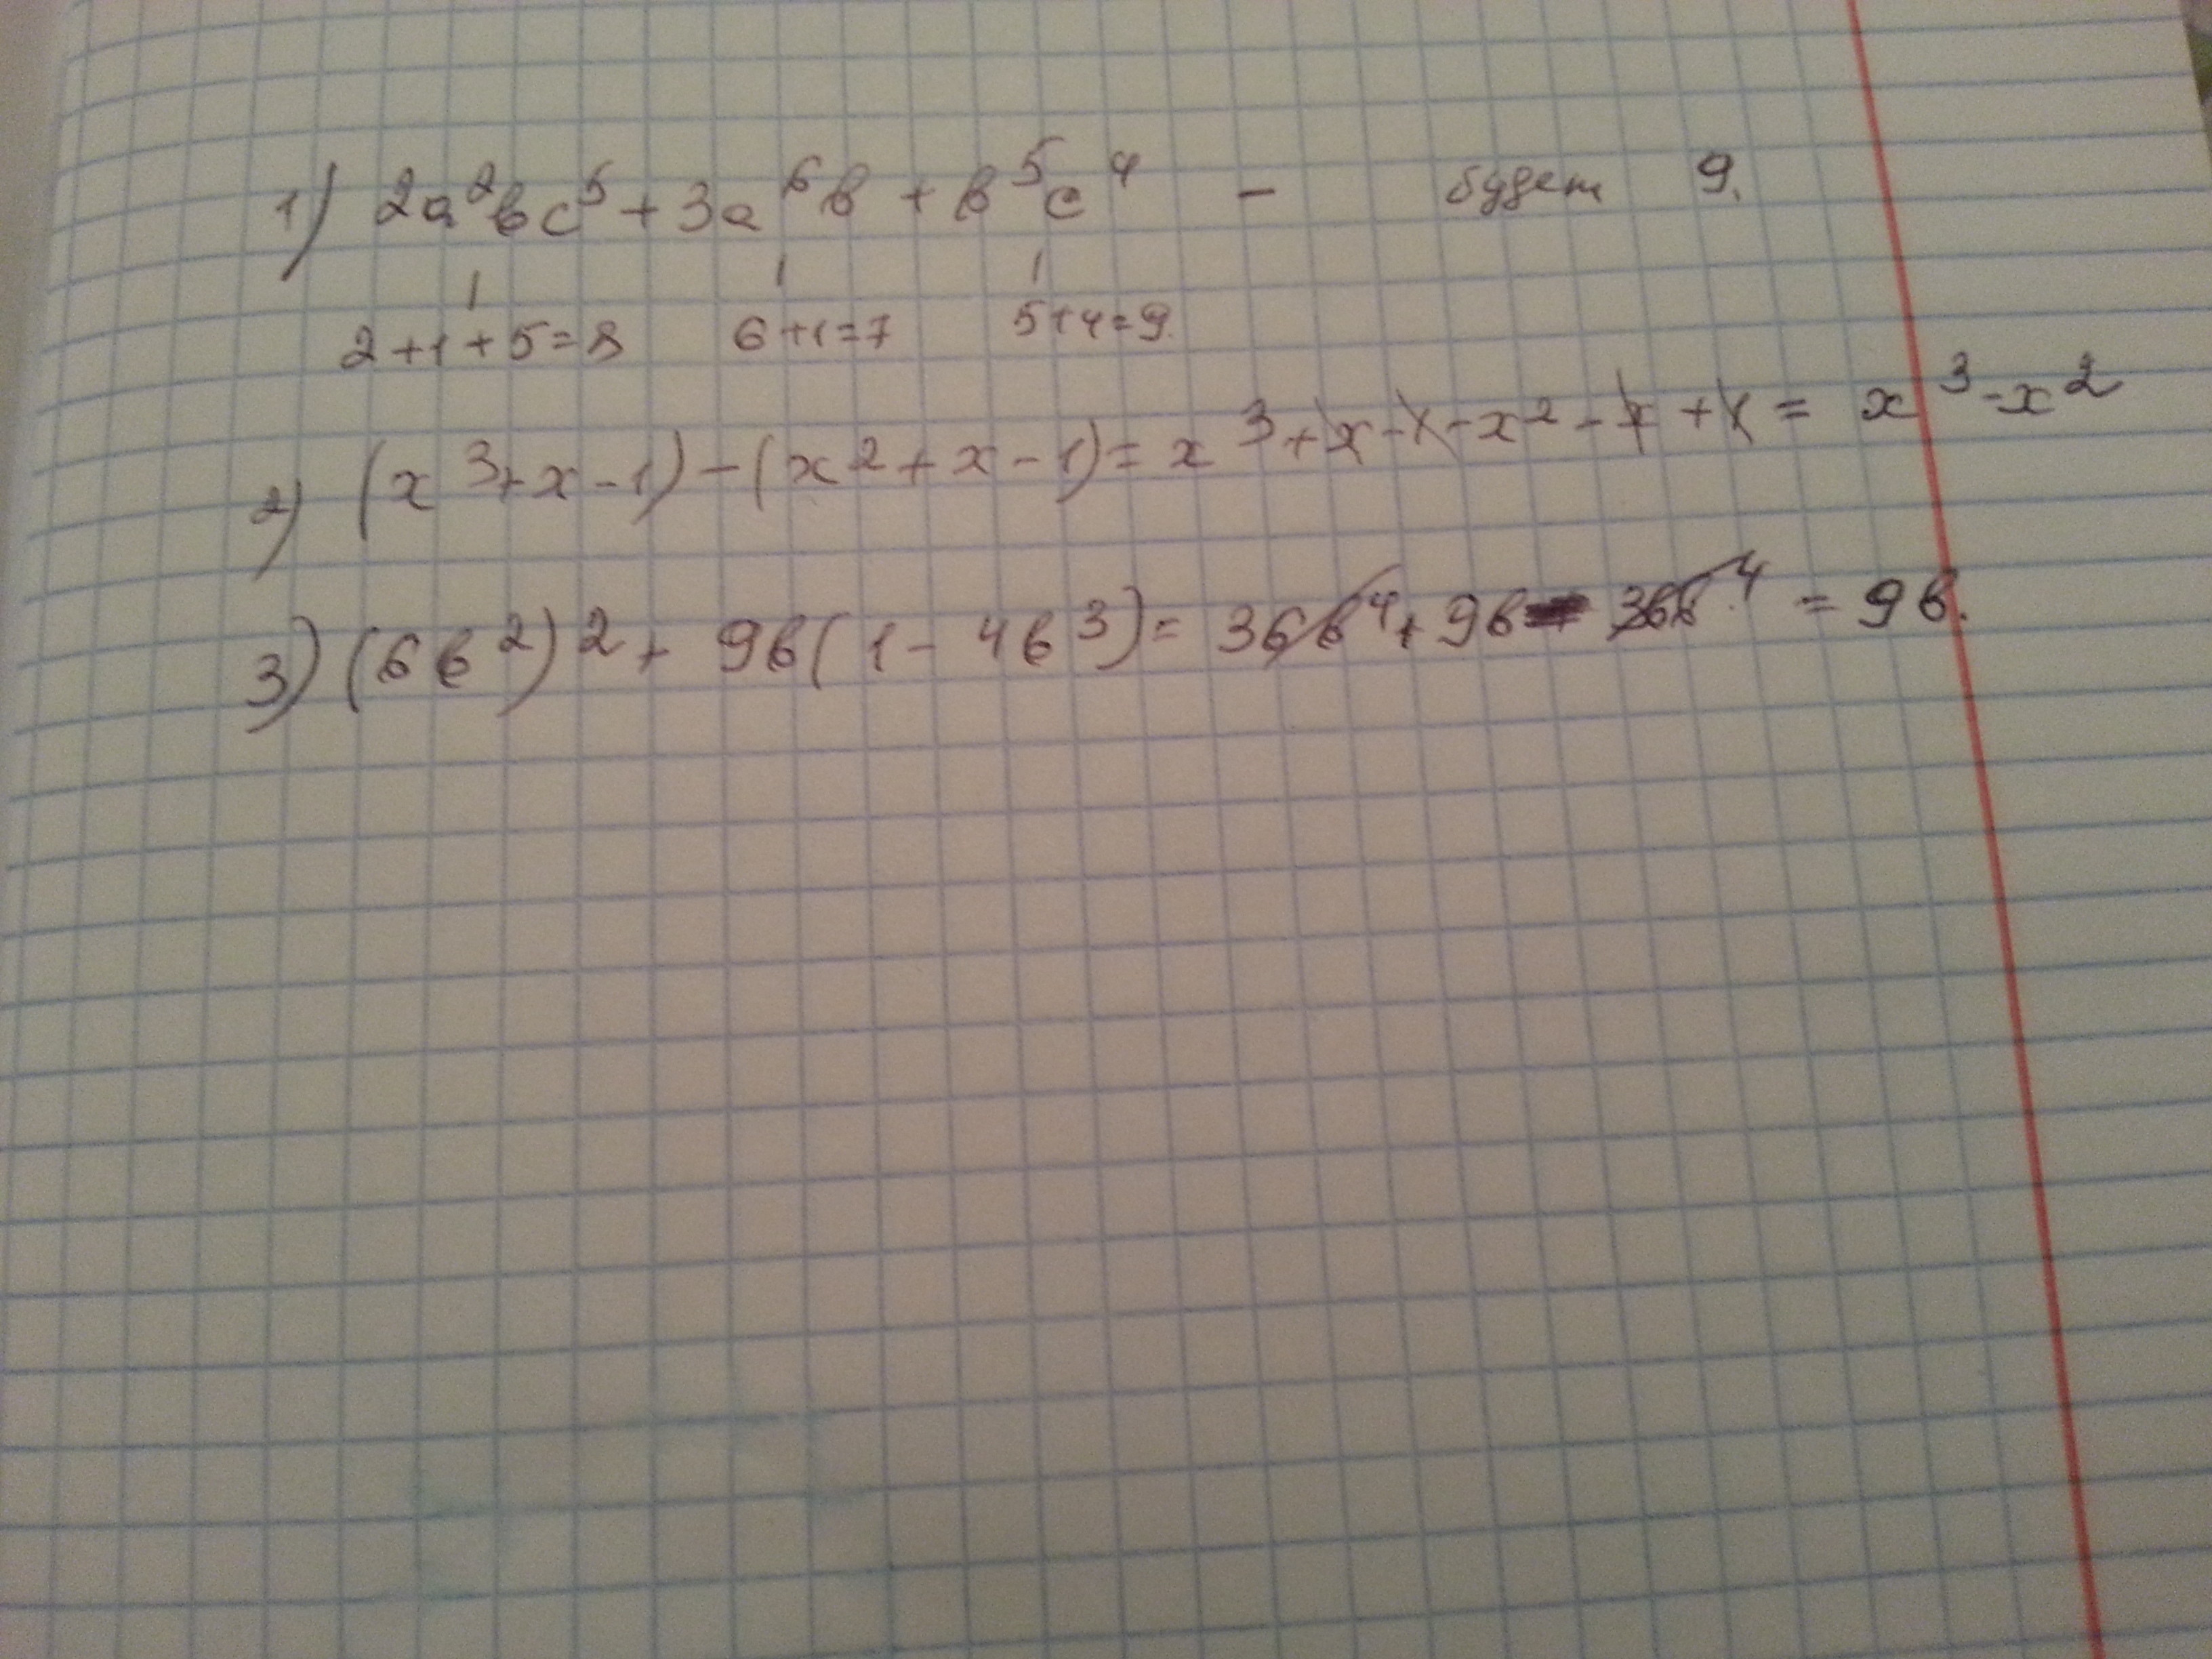 1) 2a²bc⁵ + 3a⁶b + b⁵c⁴ – будет 9.
2+1+5=8 6+1=7 5+4=9.
2) (x³+x-1)-(x²+x-1)= x³+x-1-x²-x+1= x³-x²
3) (6b²)²+ 9b(1-4b³)= 36b⁴+9b-36b⁴ = 9b.